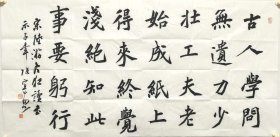 古人學問
無遺力少
壯工夫老
始成紙上
得來終覺
淺絕知此
事要躬行
宋陸游冬夜讀書
示子聿